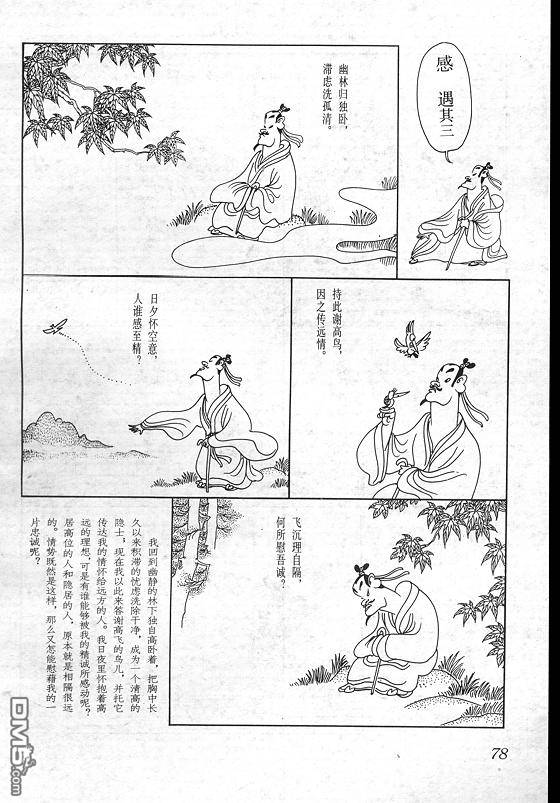 感遇其三
幽林归独卧,
滞虑洗孤清。
持此谢高鸟,
因之传远情。
日夕怀空意,
人谁感至精?
飞沉理自隔,
何所慰吾诚?
我回到幽静的林下独自高卧着,把胸中长
久以来积滞的忧虑洗除干净,成为一个清高的
隐士,现在我以此来答谢高飞的鸟儿,并托它
传达我的情怀给远方的人。我日夜里怀抱着高
远的理想,可是有谁能够被我的精诚所感动呢?
居高位的人和隐居的人,原本就是相隔很远
的。情势既然是这样,那么又怎能慰藉我的一
片忠诚呢?
78
DM5.com